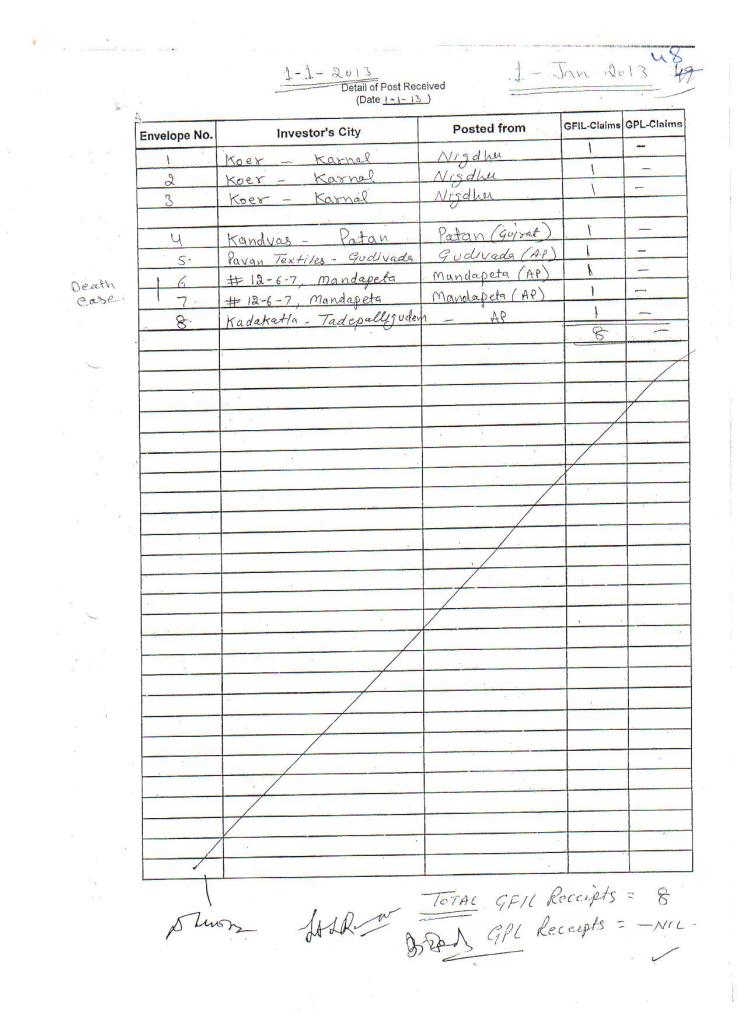 48
1-1-2013
1 - Jan 2013 49
Detail of Post Received
(Date 1-1-13)
Envelope No. Investor's City Posted from GFIL-Claims GPL-Claims
1 Koer - Karnal Nigdhu 1 -
2 Koer - Karnal Nigdhu 1 -
3 Koer - Karnal Nigdhu 1 -
4 Kandvas - Patan Patan (Gujrat) 1 -
5. Pavan Textiles - Gudivada Gudivada (A.P) 1 -
Death Case. 6 # 12-6-7, Mandapeta Mandapeta (AP) 1 -
7. # 12-6-7, Mandapeta Mandapeta (AP) 1 -
8. Kadakatla - Tadepalligudem - AP 1 -
8 -
TOTAL GFIL Receipts = 8
GPL Receipts = -NIL-